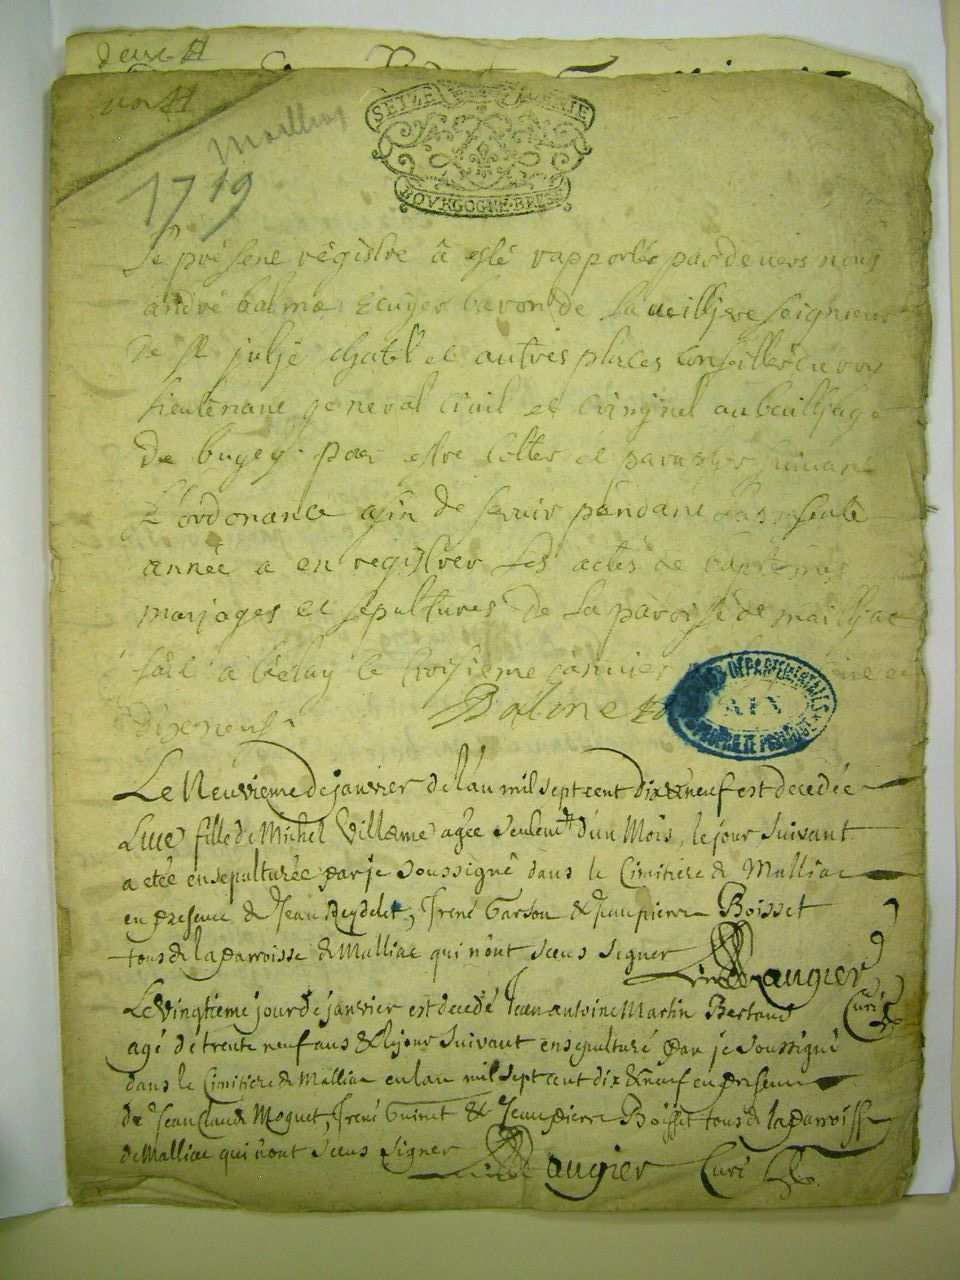 Mailliat
1719
SEIZE
BOURGOGNE BRESSE
Le présent régistre a esté rapporté pardevers nous
andré balme Ecuyer baron de seigneur
de St julje chatel et autres places Conseiller du roy
lieutenant general civil et au bailljage
de bugey pour estre cottés et suivant
L'ordonance afin de servir pendant seule
année a enregistrer les actes de baptemes
marjages et sepultures de la paroisse de mailljac
fait a belay le troisieme janvier
dixeneuf
Balme
DEPARTEMENTALES
AIN
PROPRIETE PUBLIQUE
Le Neuvieme de janvier de l'an mil sept cent dix & neuf est decedée
fille de Michel agée seulemt d'un Mois, le jour suivant
a etée ensepulturée par je soussigné dans le Cimitiere de Malliac
en presence de Jean Reydelet, Irené & Jeanpierre Boisset
tous de la parroisse de Malliac qui n'ont sceus signer
augier
Curé
Le vingtieme jour de janvier est decedé Jean antoine Martin Bertand
agé de trente neuf ans & le jour suivant ensepulturé par je soussigné
dans le Cimitiere de Malliac en l'an mil sept cent dix & neuf en presence
de Jean Claude Moquet, Irené Guinet & Jeanpierre Boisset tous de la parroisse
de Malliac qui n'ont sceus signer
augier Curé